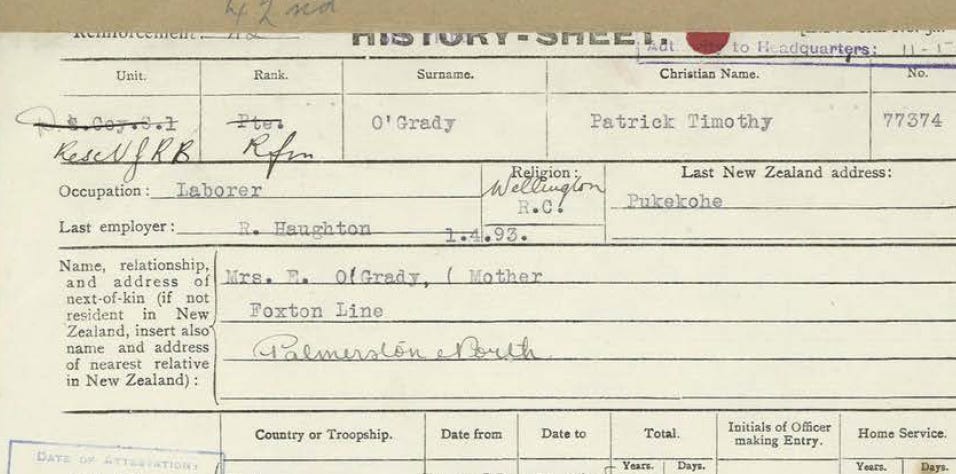 42nd
Reinforcement: 42
HISTORY-SHEET.
to Headquarters:
Unit. Rank. Surname. Christian Name. No.
E.Coy.S.1 Pte. O'Grady Patrick Timothy 77374
Res N Z R B Rfm
Occupation: Laborer
Religion:
Wellington
R.C.
Last New Zealand address:
Pukekohe
Last employer: R. Haughton 1.4.93.
Name, relationship,
and address of
next-of-kin (if not
resident in New
Zealand, insert also
name and address
of nearest relative
in New Zealand):
Mrs. E. O'Grady, ( Mother
Foxton Line
Palmerston North
Country or Troopship. Date from Date to Total. Initials of Officer making Entry. Home Service.
Years. Days. Years. Days.
DATE OF ATTESTATION: